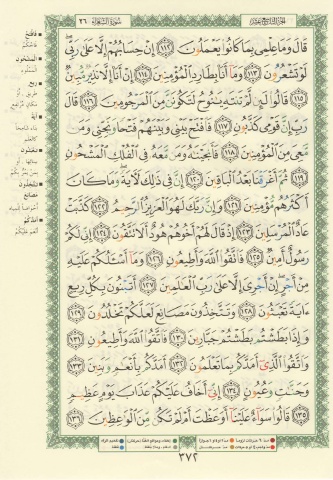 سُورَةُ الشُّعَرَاءِ ٢٦
قَالَ وَمَا عِلْمِي بِمَا كَانُوا يَعْمَلُونَ ﴿١١٢﴾ إِنْ حِسَابُهُمْ إِلَّا عَلَىٰ رَبِّي
لَوْ تَشْعُرُونَ ﴿١١٣﴾ وَمَا أَنَا بِطَارِدِ الْمُؤْمِنِينَ ﴿١١٤﴾ إِنْ أَنَا إِلَّا نَذِيرٌ مُبِينٌ
﴿١١٥﴾ قَالُوا لَئِنْ لَمْ تَنْتَهِ يَا نُوحُ لَتَكُونَنَّ مِنَ الْمَرْجُومِينَ ﴿١١٦﴾ قَالَ
رَبِّ إِنَّ قَوْمِي كَذَّبُونِ ﴿١١٧﴾ فَافْتَحْ بَيْنِي وَبَيْنَهُمْ فَتْحًا وَنَجِّنِي وَمَنْ
مَعِيَ مِنَ الْمُؤْمِنِينَ ﴿١١٨﴾ فَأَنْجَيْنَاهُ وَمَنْ مَعَهُ فِي الْفُلْكِ الْمَشْحُونِ
﴿١١٩﴾ ثُمَّ أَغْرَقْنَا بَعْدُ الْبَاقِينَ ﴿١٢٠﴾ إِنَّ فِي ذَٰلِكَ لَآيَةً وَمَا كَانَ
أَكْثَرُهُمْ مُؤْمِنِينَ ﴿١٢١﴾ وَإِنَّ رَبَّكَ لَهُوَ الْعَزِيزُ الرَّحِيمُ ﴿١٢٢﴾ كَذَّبَتْ
عَادٌ الْمُرْسَلِينَ ﴿١٢٣﴾ إِذْ قَالَ لَهُمْ أَخُوهُمْ هُودٌ أَلَا تَتَّقُونَ ﴿١٢٤﴾ إِنِّي لَكُمْ
رَسُولٌ أَمِينٌ ﴿١٢٥﴾ فَاتَّقُوا اللَّهَ وَأَطِيعُونِ ﴿١٢٦﴾ وَمَا أَسْأَلُكُمْ عَلَيْهِ
مِنْ أَجْرٍ إِنْ أَجْرِيَ إِلَّا عَلَىٰ رَبِّ الْعَالَمِينَ ﴿١٢٧﴾ أَتَبْنُونَ بِكُلِّ رِيعٍ
آيَةً تَعْبَثُونَ ﴿١٢٨﴾ وَتَتَّخِذُونَ مَصَانِعَ لَعَلَّكُمْ تَخْلُدُونَ ﴿١٢٩﴾
وَإِذَا بَطَشْتُمْ بَطَشْتُمْ جَبَّارِينَ ﴿١٣٠﴾ فَاتَّقُوا اللَّهَ وَأَطِيعُونِ ﴿١٣١﴾
وَاتَّقُوا الَّذِي أَمَدَّكُمْ بِمَا تَعْلَمُونَ ﴿١٣٢﴾ أَمَدَّكُمْ بِأَنْعَامٍ وَبَنِينَ ﴿١٣٣﴾
وَجَنَّاتٍ وَعُيُونٍ ﴿١٣٤﴾ إِنِّي أَخَافُ عَلَيْكُمْ عَذَابَ يَوْمٍ عَظِيمٍ
﴿١٣٥﴾ قَالُوا سَوَاءٌ عَلَيْنَا أَوَعَظْتَ أَمْ لَمْ تَكُنْ مِنَ الْوَاعِظِينَ ﴿١٣٦﴾
٣٧٢